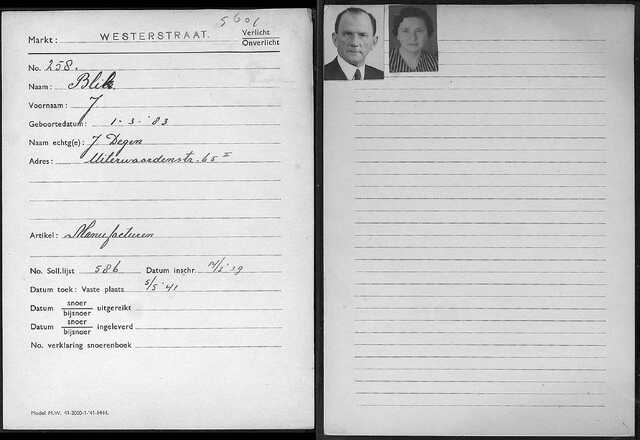 5601
Markt: WESTERSTRAAT. Verlicht
Onverlicht
No. 258.
Naam: Blik.
Voornaam: J
Geboortedatum: 1-3-'83
Naam echtg(e): J. Degen
Adres: Uiterwaardenstr. 65 II
Artikel: Manufacturen
No. Soll.lijst 586 Datum inschr. '19
Datum toek: Vaste plaats 5/5 '41
Datum snoer uitgereikt
bijsnoer
Datum snoer ingeleverd
bijsnoer
No. verklaring snoerenboek
Model M.W. 41-2000-1-'41-